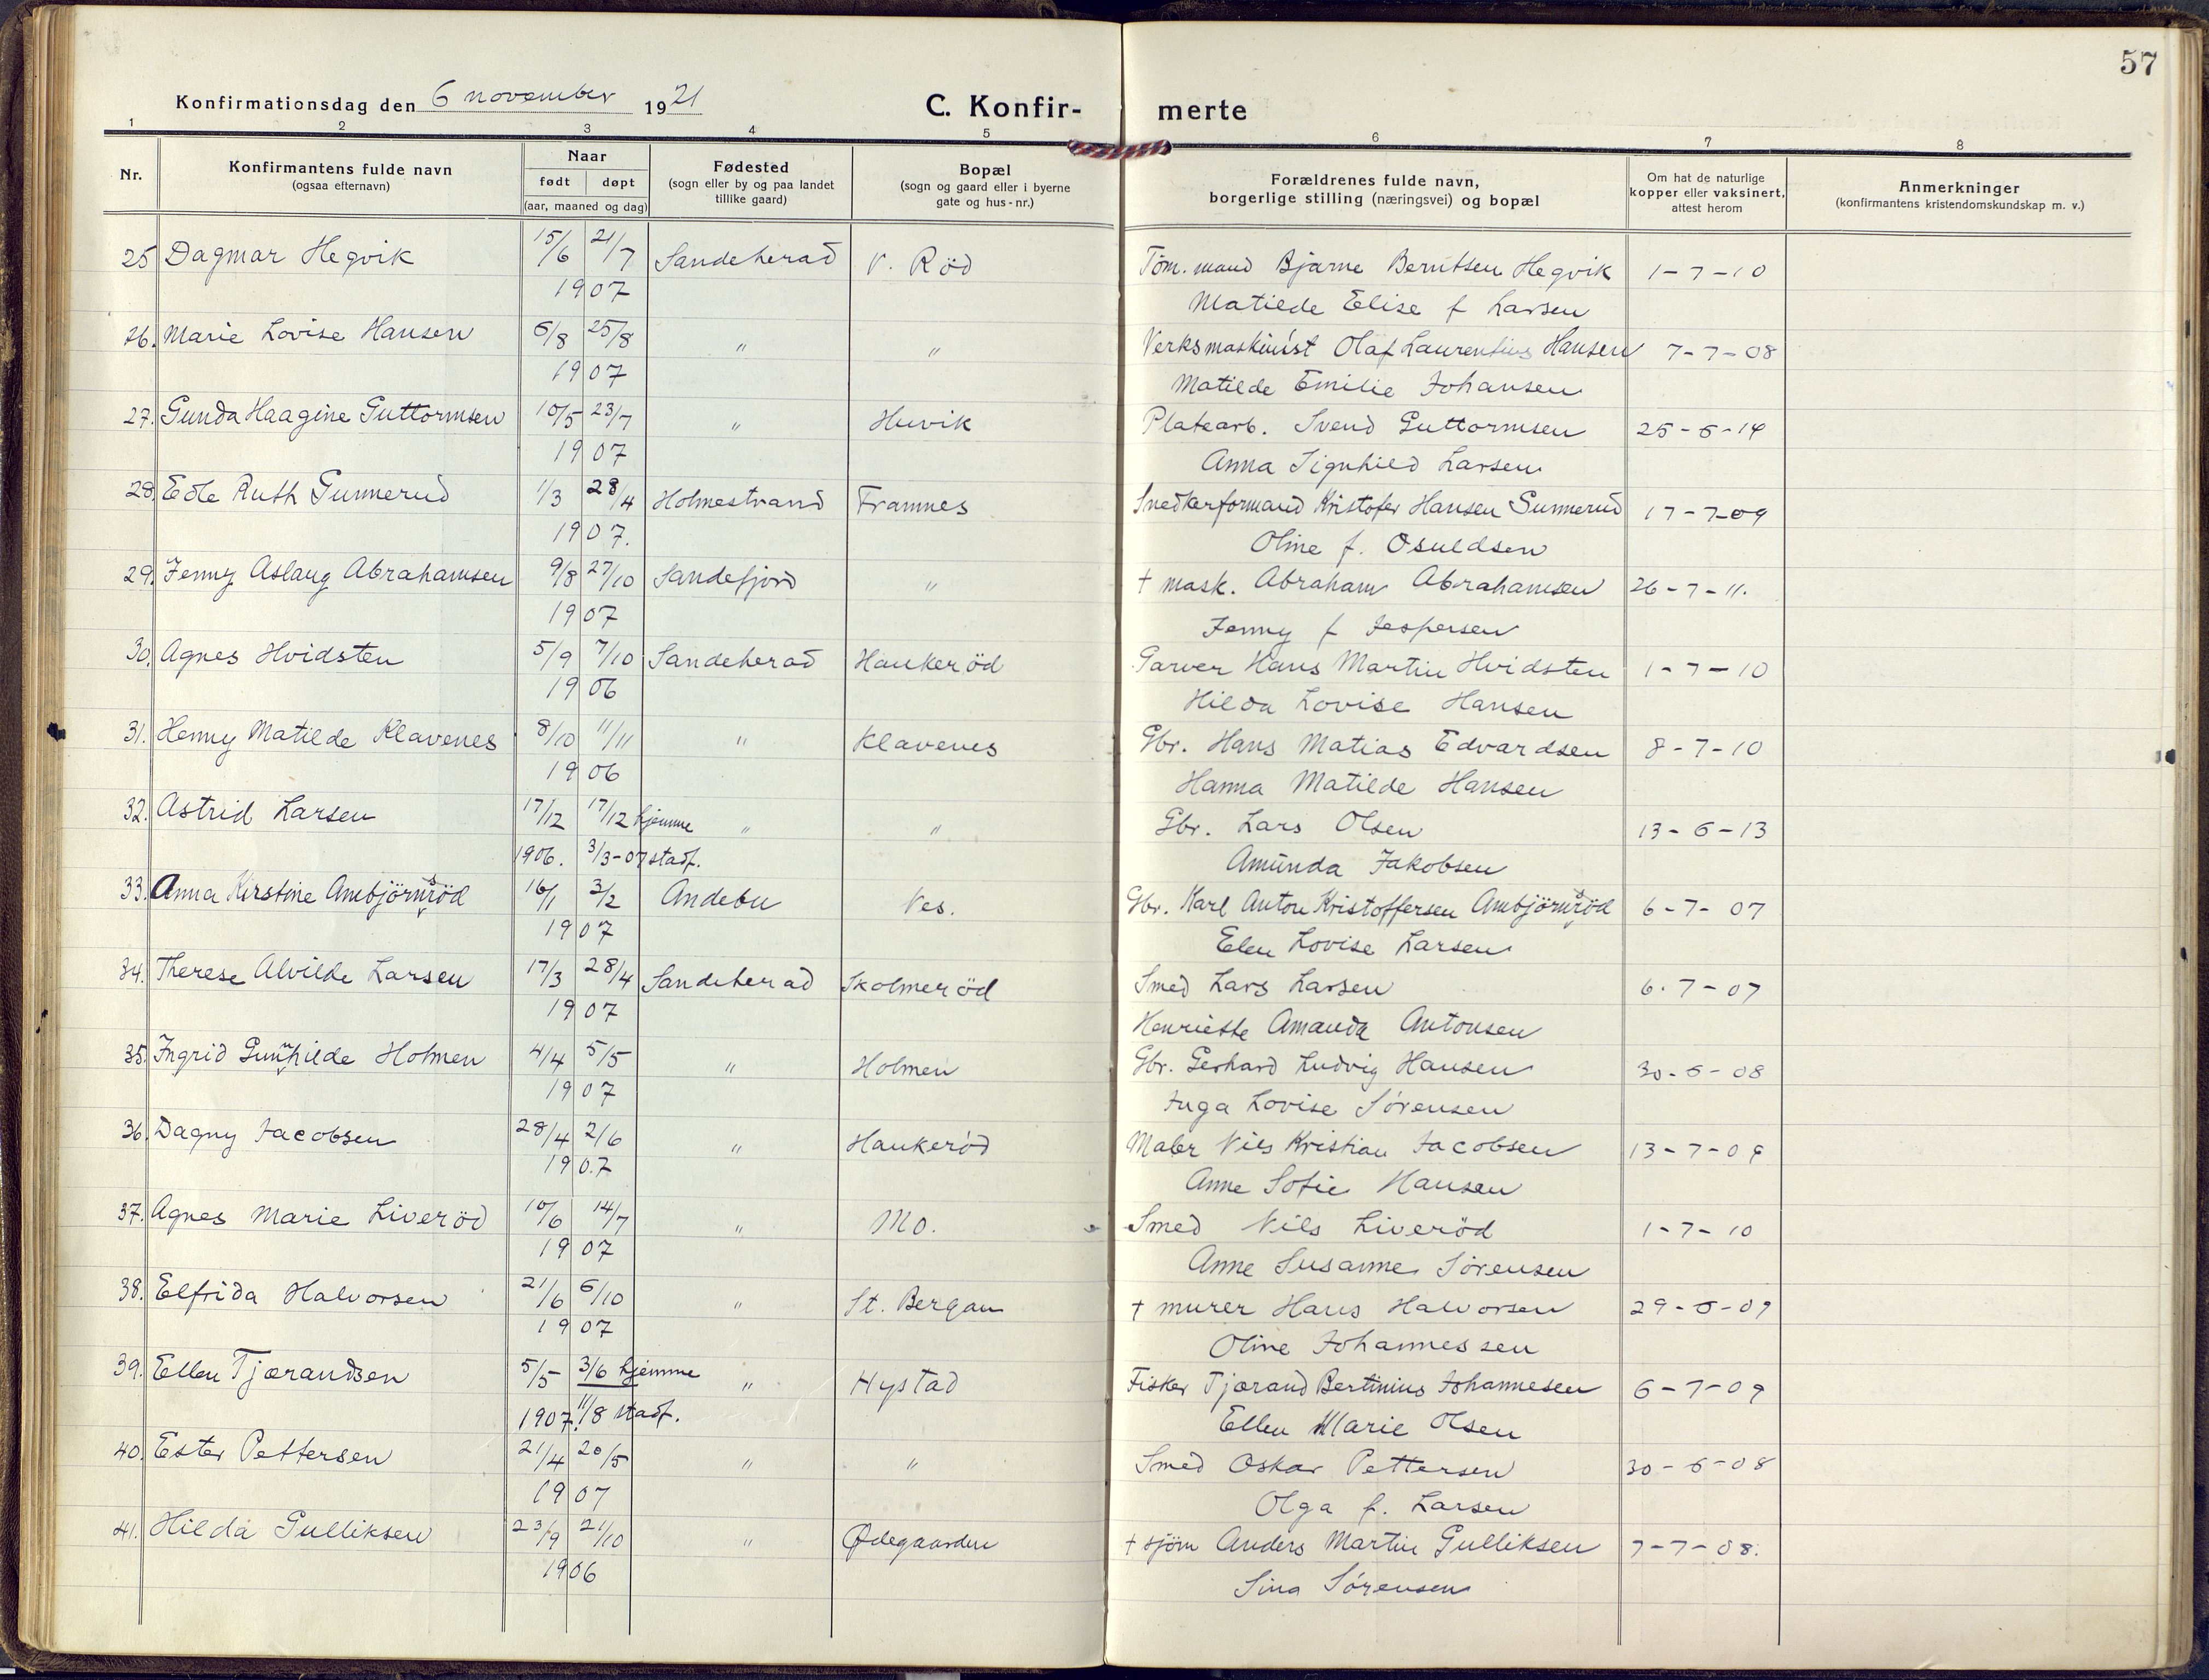 57
Konfirmationsdag den 6 november 1921
C. Konfir- merte
1 2 3 4 5 6 7 8
Nr.
Konfirmantens fulde navn
(ogsaa efternavn)
Naar
født døpt
(aar, maaned og dag)
Fødested
(sogn eller by og paa landet
tillike gaard)
Bopæl
(sogn og gaard eller i byerne
gate og hus-nr.)
Forældrenes fulde navn,
borgerlige stilling (næringsvei) og bopæl
Om hat de naturlige
kopper eller vaksinert,
attest herom
Anmerkninger
(konfirmantens kristendomskundskap m. v.)
25 Dagmar Hegvik 15/6 21/7 Sandeherad V. Röd Töm. mand Bjarne Berntsen Hegvik 1-7-10
1907 Matilde Elise f Larsen
26. Marie Lovise Hansen 6/8 25/8 " " Verksmaskinist Olaf Laurentius Hansen 7-7-08
1907 Matilde Emilie Johansen
27. Gunda Haagine Guttormsen 10/5 23/7 " Huvik Platearb. Svend Guttormsen 25-6-14
1907 Anna Signhild Larsen
28. Edle Ruth Gunnerud 1/3 28/4 Holmestrand Framnes Snedkerformand Kristofer Hansen Gunnerud 17-7-09
1907. Oline f. Osuldsen
29. Jenny Aslaug Abrahamsen 9/8 27/10 Sandefjord " † mask. Abraham Abrahamsen 26-7-11.
1907 Jenny f Jespersen
30. Agnes Hvidsten 5/9 7/10 Sandeherad Haukeröd Garver Hans Martin Hvidsten 1-7-10
1906 Hilda Lovise Hansen
31. Henny Matilde Klavenes 8/10 11/11 " Klavenes Gbr. Hans Matias Edvardsen 8-7-10
1906 Hanna Matilde Hansen
32. Astrid Larsen 17/12 17/12 hjemme " " Gbr. Lars Olsen 13-6-13
1906. 3/3-07 stadf. Amunda Jakobsen
33. Anna Kirstine Ambjörnsröd 16/1 3/2 Andebu Ves. Gbr. Karl Anton Kristoffersen Ambjörnsröd 6-7-07
1907 Elen Lovise Larsen
34. Therese Alvilde Larsen 17/3 28/4 Sandeherad Skolmeröd Smed Lars Larsen 6.7-07
1907 Henriette Amanda Antonsen
35. Ingrid Gunnhilde Holmen 4/4 5/5 " Holmen Gbr. Gerhard Ludvig Hansen 30-6-08
1907 Inga Lovise Sörensen
36. Dagny Jacobsen 28/4 2/6 " Haukeröd Maler Nils Kristian Jacobsen 13-7-09
1907 Anne Sofie Hansen
37. Agnes Marie Liveröd 10/6 14/7 " Mo. Smed Nils Liveröd 1-7-10
1907 Anne Susanne Sörensen
38. Elfrida Halvorsen 21/6 6/10 " St. Bergan † murer Hans Halvorsen 29-6-09
1907 Oline Johannessen
39. Ellen Tjærandsen 5/5 3/6 hjemme " Nystad Fisker Tjærand Bertinius Johannesen 6-7-09
1907. 11/8 stadf. Ellen Marie Olsen
40. Ester Pettersen 21/4 20/5 " " Smed Oskar Pettersen 30-6-08
1907 Olga f. Larsen
41. Hilda Gulliksen 23/9 21/10 " Ødegaarden † sjöm Anders Martin Gulliksen 7-7-08.
1906 Sina Sörensen